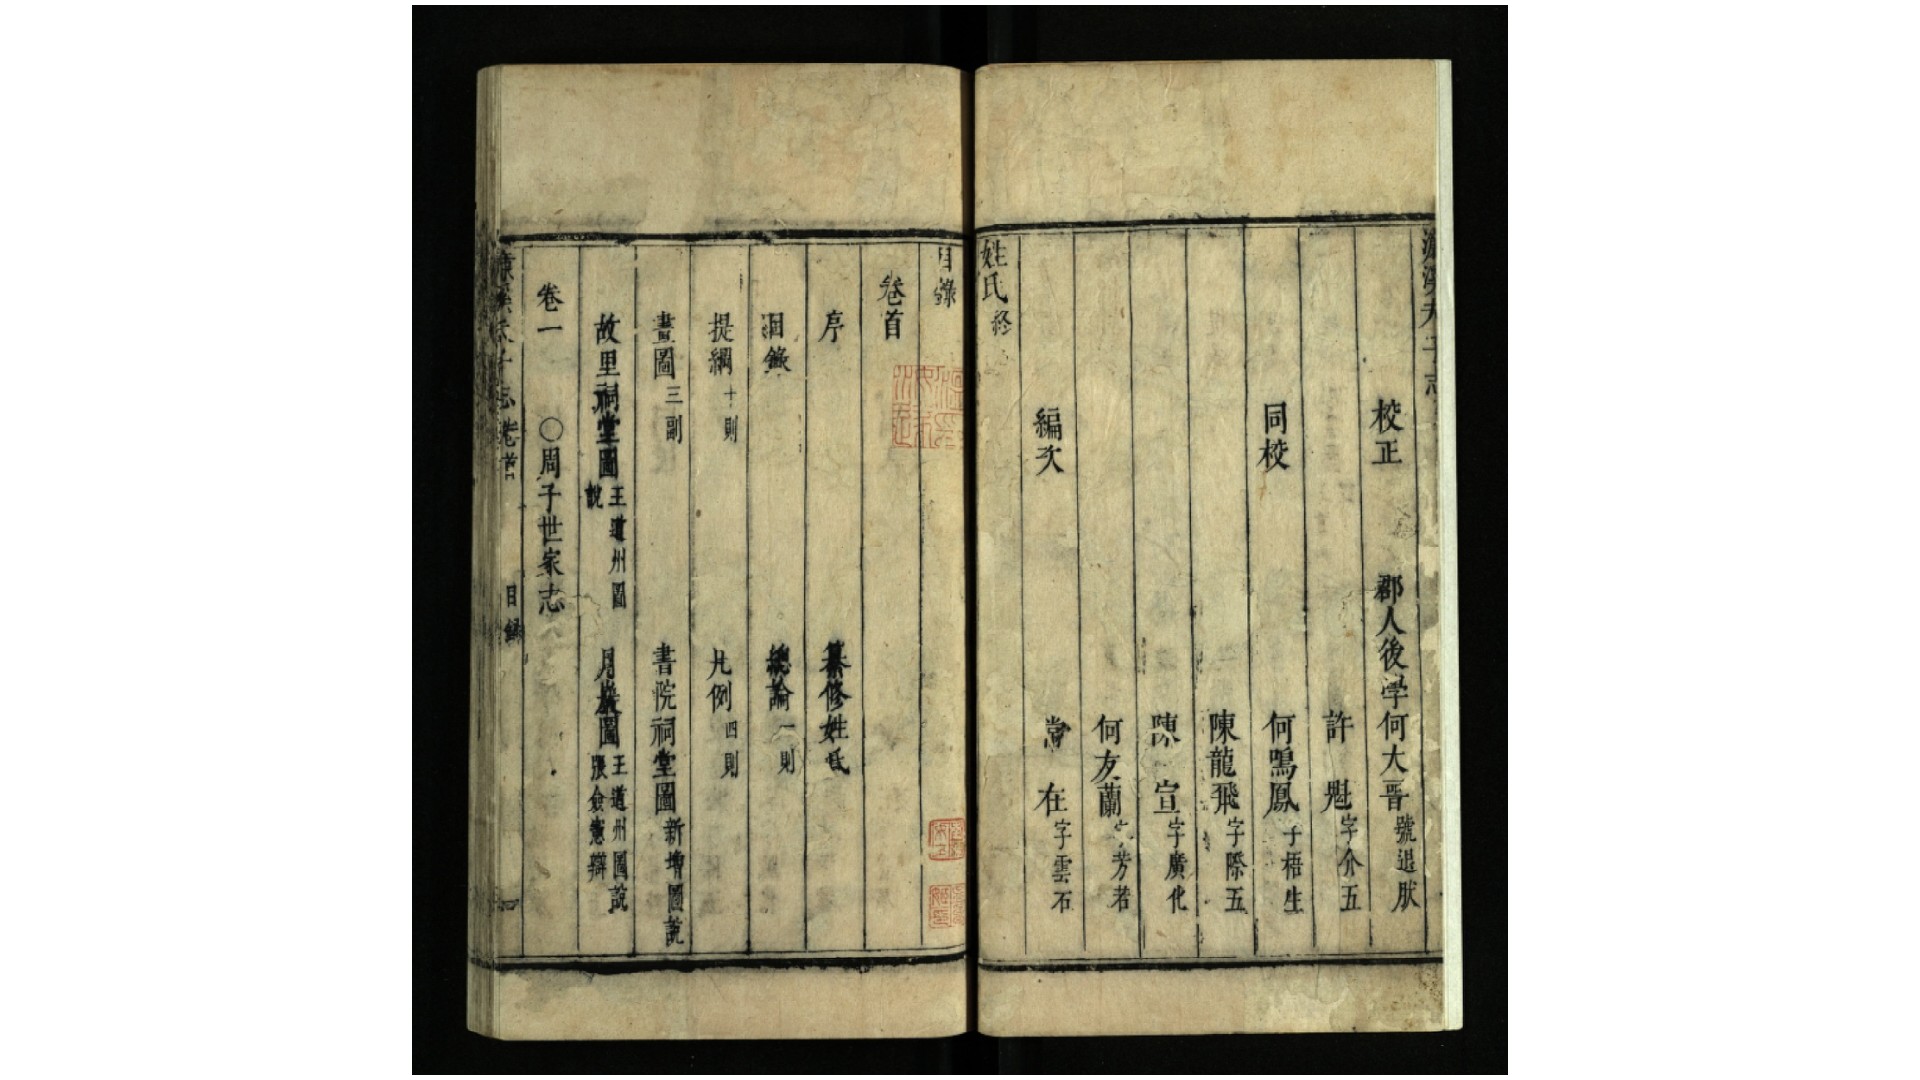 校正 郡人後學何大晋號退肰
許 魁字介五
同校 何鳴鳳子梧生
陳龍飛字際五
陳 宣字廣化
何友蘭字芳者
編次 常 在字雲石
姓氏終
目錄
卷首
序 纂修姓氏
目錄 總論一則
提綱十則 凡例四則
畫圖三副 書院祠堂圖新增圖說
故里祠堂圖王道州圖說 月巖圖王道州圖說張僉憲辯
卷一 〇周子世家志
濂溪夫子志 卷首 目錄 一